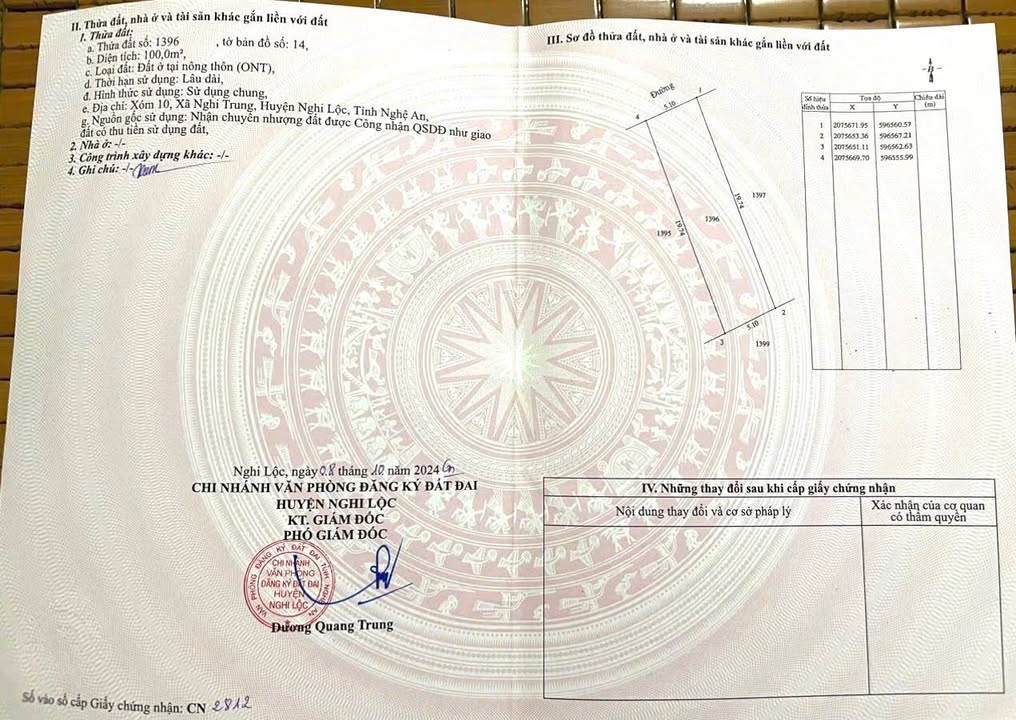 II. Thửa đất, nhà ở và tài sản khác gắn liền với đất
1. Thửa đất:
a. Thửa đất số: 1396 , tờ bản đồ số: 14,
b. Diện tích: 100,0m²,
c. Loại đất: Đất ở tại nông thôn (ONT),
d. Thời hạn sử dụng: Lâu dài,
đ. Hình thức sử dụng: Sử dụng chung,
e. Địa chỉ: Xóm 10, Xã Nghi Trung, Huyện Nghi Lộc, Tỉnh Nghệ An,
g. Nguồn gốc sử dụng: Nhận chuyển nhượng đất được Công nhận QSDĐ như giao
đất có thu tiền sử dụng đất,
2. Nhà ở: -/-
3. Công trình xây dựng khác: -/-
4. Ghi chú: -/-
Nghi Lộc, ngày 08 tháng 10 năm 2024
CHI NHÁNH VĂN PHÒNG ĐĂNG KÝ ĐẤT ĐAI
HUYỆN NGHI LỘC
KT. GIÁM ĐỐC
PHÓ GIÁM ĐỐC
VĂN PHÒNG ĐĂNG KÝ ĐẤT ĐAI TỈNH NGHỆ AN
CHI NHÁNH
VĂN PHÒNG
ĐĂNG KÝ ĐẤT ĐAI
HUYỆN
NGHI LỘC
Dương Quang Trung
Số vào sổ cấp Giấy chứng nhận: CN 2812
III. Sơ đồ thửa đất, nhà ở và tài sản khác gắn liền với đất
B
Đường
5.10
1
4
19.74
1397
1396
1395
19.74
2
5.10
3
1399
Số hiệu đỉnh thửa Tọa độ Chiều dài (m)
X Y
1 2075671.95 596560.57
2 2075653.36 596567.21
3 2075651.11 596562.63
4 2075669.70 596555.99
IV. Những thay đổi sau khi cấp giấy chứng nhận
Nội dung thay đổi và cơ sở pháp lý
Xác nhận của cơ quan
có thẩm quyền